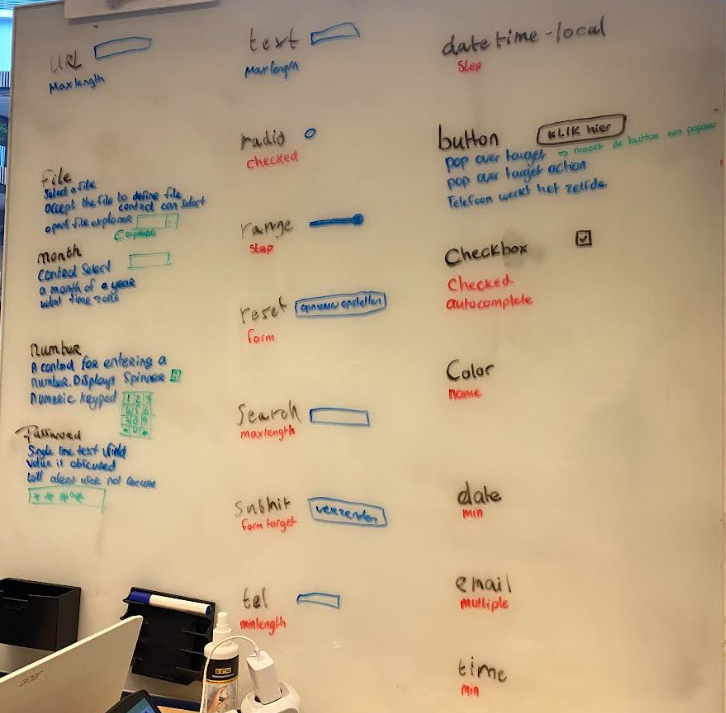 URL
Maxlength
File
Select a file
accept the file to define file
control can select
open file explorer
Capture
month
Control Select
a month of a year
want time zone
number
A control for entering a
number. Displays Spinner
numeric keypad
1 2 3
4 5 6
Password
Single line text field
value is obscured
will alert user not secure
****
text
Maxlength
radio
checked
range
step
reset
opnieuw opstellen
form
Search
maxlength
submit
verzenden
form target
tel
minlength
datetime-local
Step
button
KLIK hier
pop over target => maakt de button een popover
pop over target action
Telefoon werkt het zelfde
Checkbox
Checked
autocomplete
Color
name
date
min
email
multiple
time
min